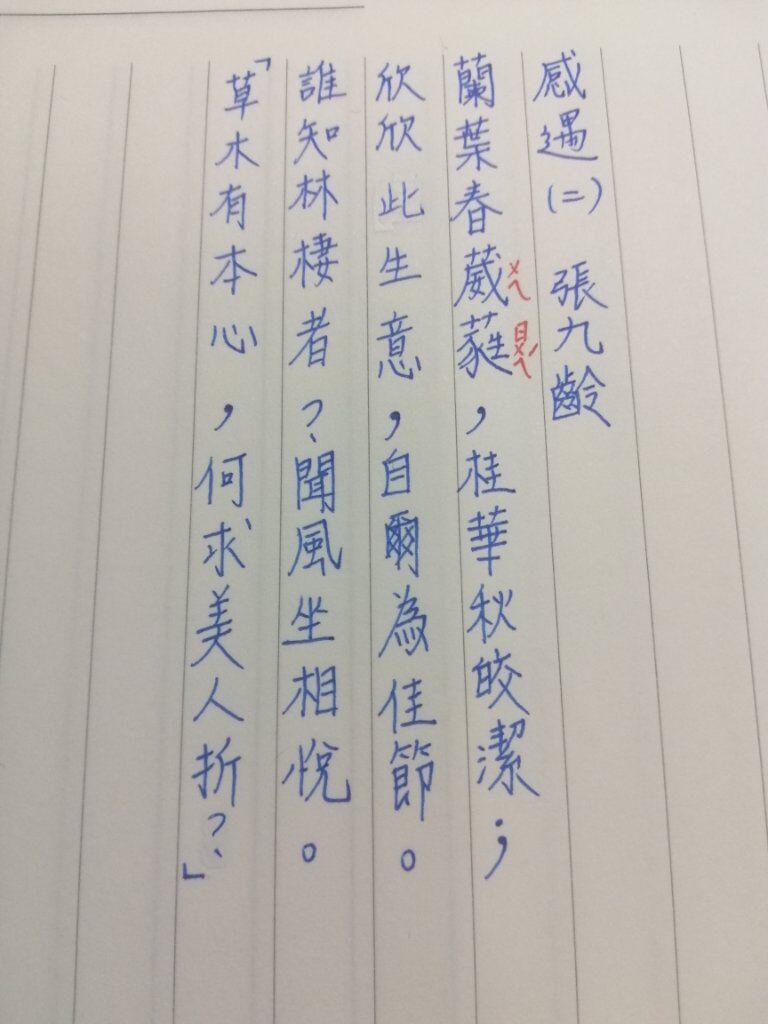 感遇(二) 張九齡
蘭葉春葳蕤,桂華秋皎潔;
ㄨㄟ
ㄖㄨㄟˊ
欣欣此生意,自爾為佳節。
誰知林棲者?聞風坐相悅。
「草木有本心,何求美人折?」